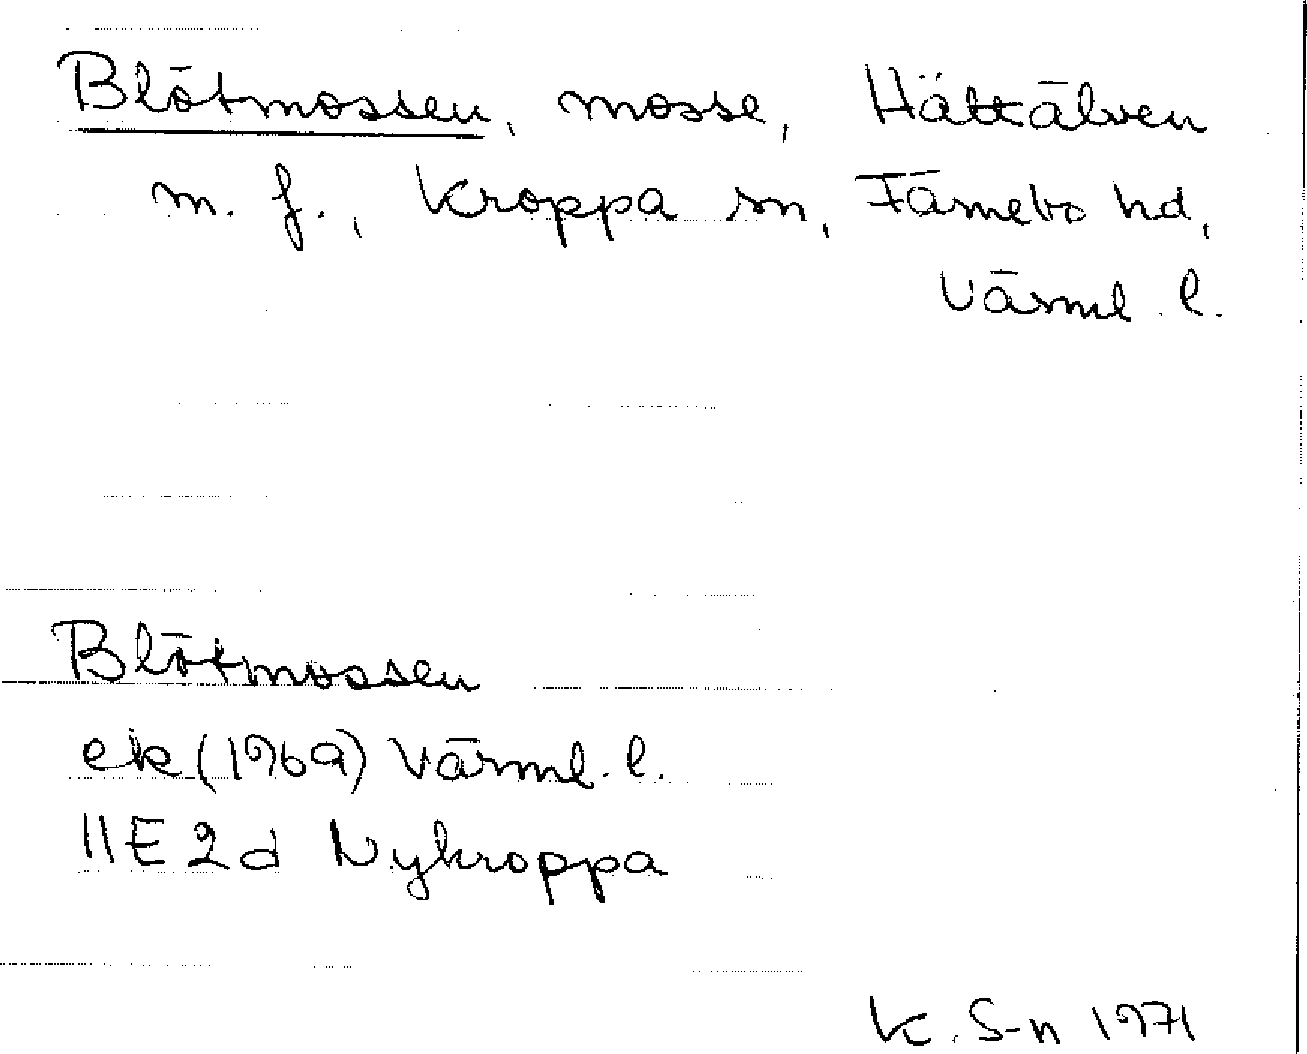 Blötmossen, mosse, Hättälven
m. f., Kroppa sn, Färnebo hd,
Värml. l.
Blötmossen
ek (1969) Värml. l.
11E 2d Nykroppa
K. S-n 1971